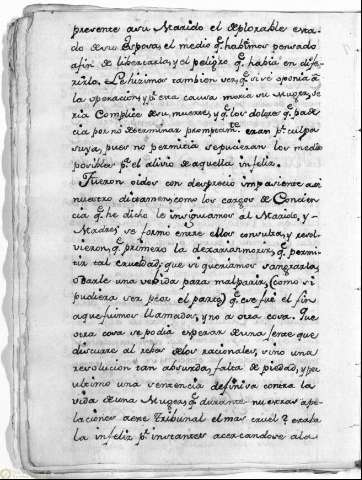 presente a su Marido el deplorable esta-
do de su Esposa, el medio q.e habiamos pensado
afin de libertarla, y el peligro q.e habia en dife-
rirla. Le hizimos tambien ver, q.e si se oponia à
la operacion, y p.r esta causa moria su Muger, se
ria Complice de su muerte, y q.e los dolores q.e pade
cia por no determinar promptam.te eran p.r culpa
suya, pues no permitia se pusieran los medio
posibles p.a el alivio de aquella infeliz.
Fueron oidos con desprecio impaciente asi
nuestro dictamen, como los cargos de Concien
cia q.e he dicho le insignuamos al Marido, y-
Madre; se formò entre ellos consulta, y resol
vieron, q.e primero la dexarian morir, q.e permi-
tir tal crueldad; que si queriamos sangrarla,
o darle una bebida para malparir, (como si
pudiera ser peor el parto) q.e ese fuè el fin
a que fuimos llamados, y no a otra cosa. Que
otra cosa se podia esperar de una gente que
discurre al rebes de los racionales, sino una
resolucion tan absurda, falta de piedad, y por
ultimo una sentencia definiva contra la
vida de una Muger, q.e durante nuestras ape-
laciones a este Tribunal el mas cruel? estaba
la infeliz p.r instantes acercandose a la